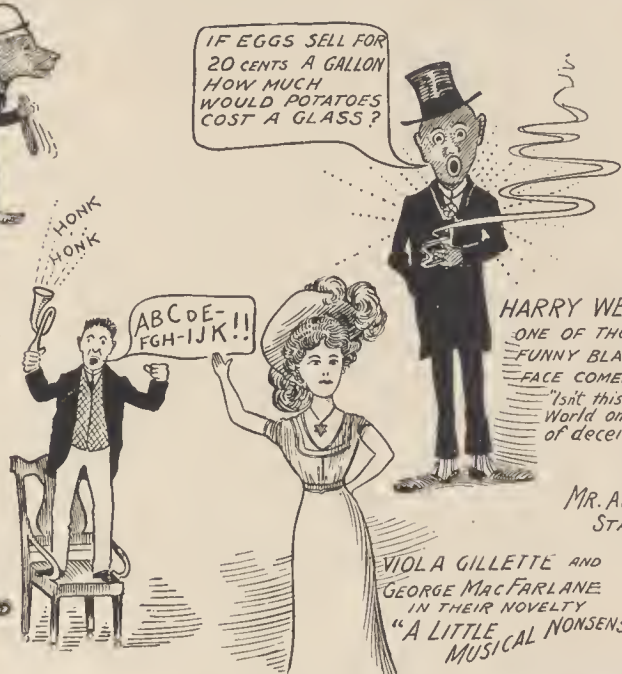 IF EGGS SELL FOR
20 CENTS A GALLON
HOW MUCH
WOULD POTATOES
COST A GLASS?
HONK
HONK
ABCDE-
FGH-IJK!!
HARRY WE
ONE OF THO
FUNNY BLA
FACE COME
"Isn't this
World on
of decei
MR. A
STA
VIOLA GILLETTE AND
GEORGE MACFARLANE
IN THEIR NOVELTY
"A LITTLE
MUSICAL NONSENS